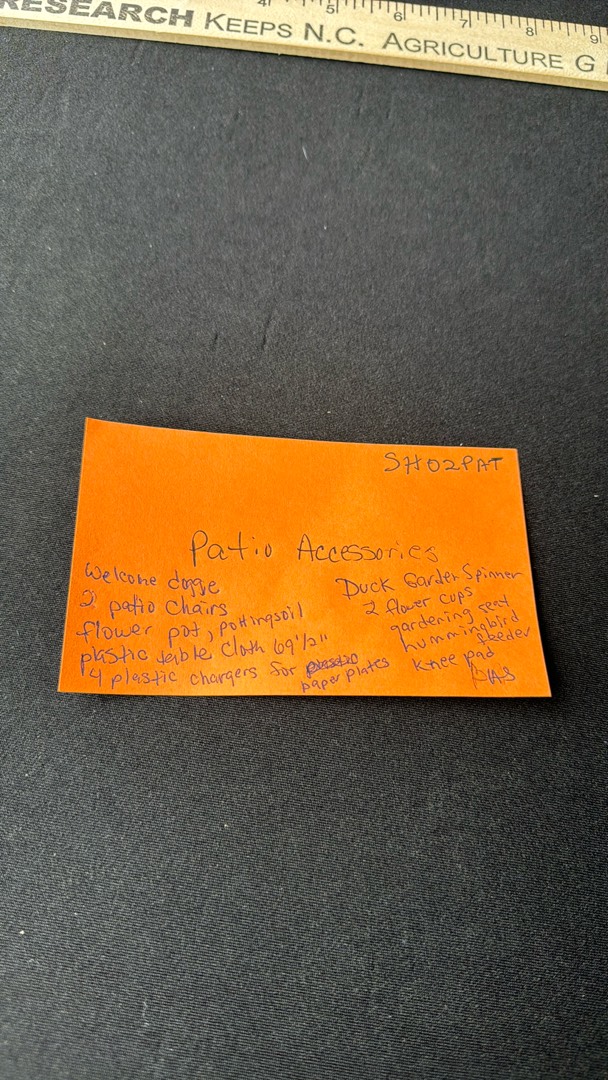 RESEARCH KEEPS N.C. AGRICULTURE G
4 5 6 7 8 9
SH02PAT
Patio Accessories
Welcome dogge
2 patio chairs
flower pot, potting soil
plastic table cloth 69 1/2"
4 plastic chargers for
paper plates
Duck Garden Spinner
2 flower cups
gardening seat
hummingbird
feeder
knee pad